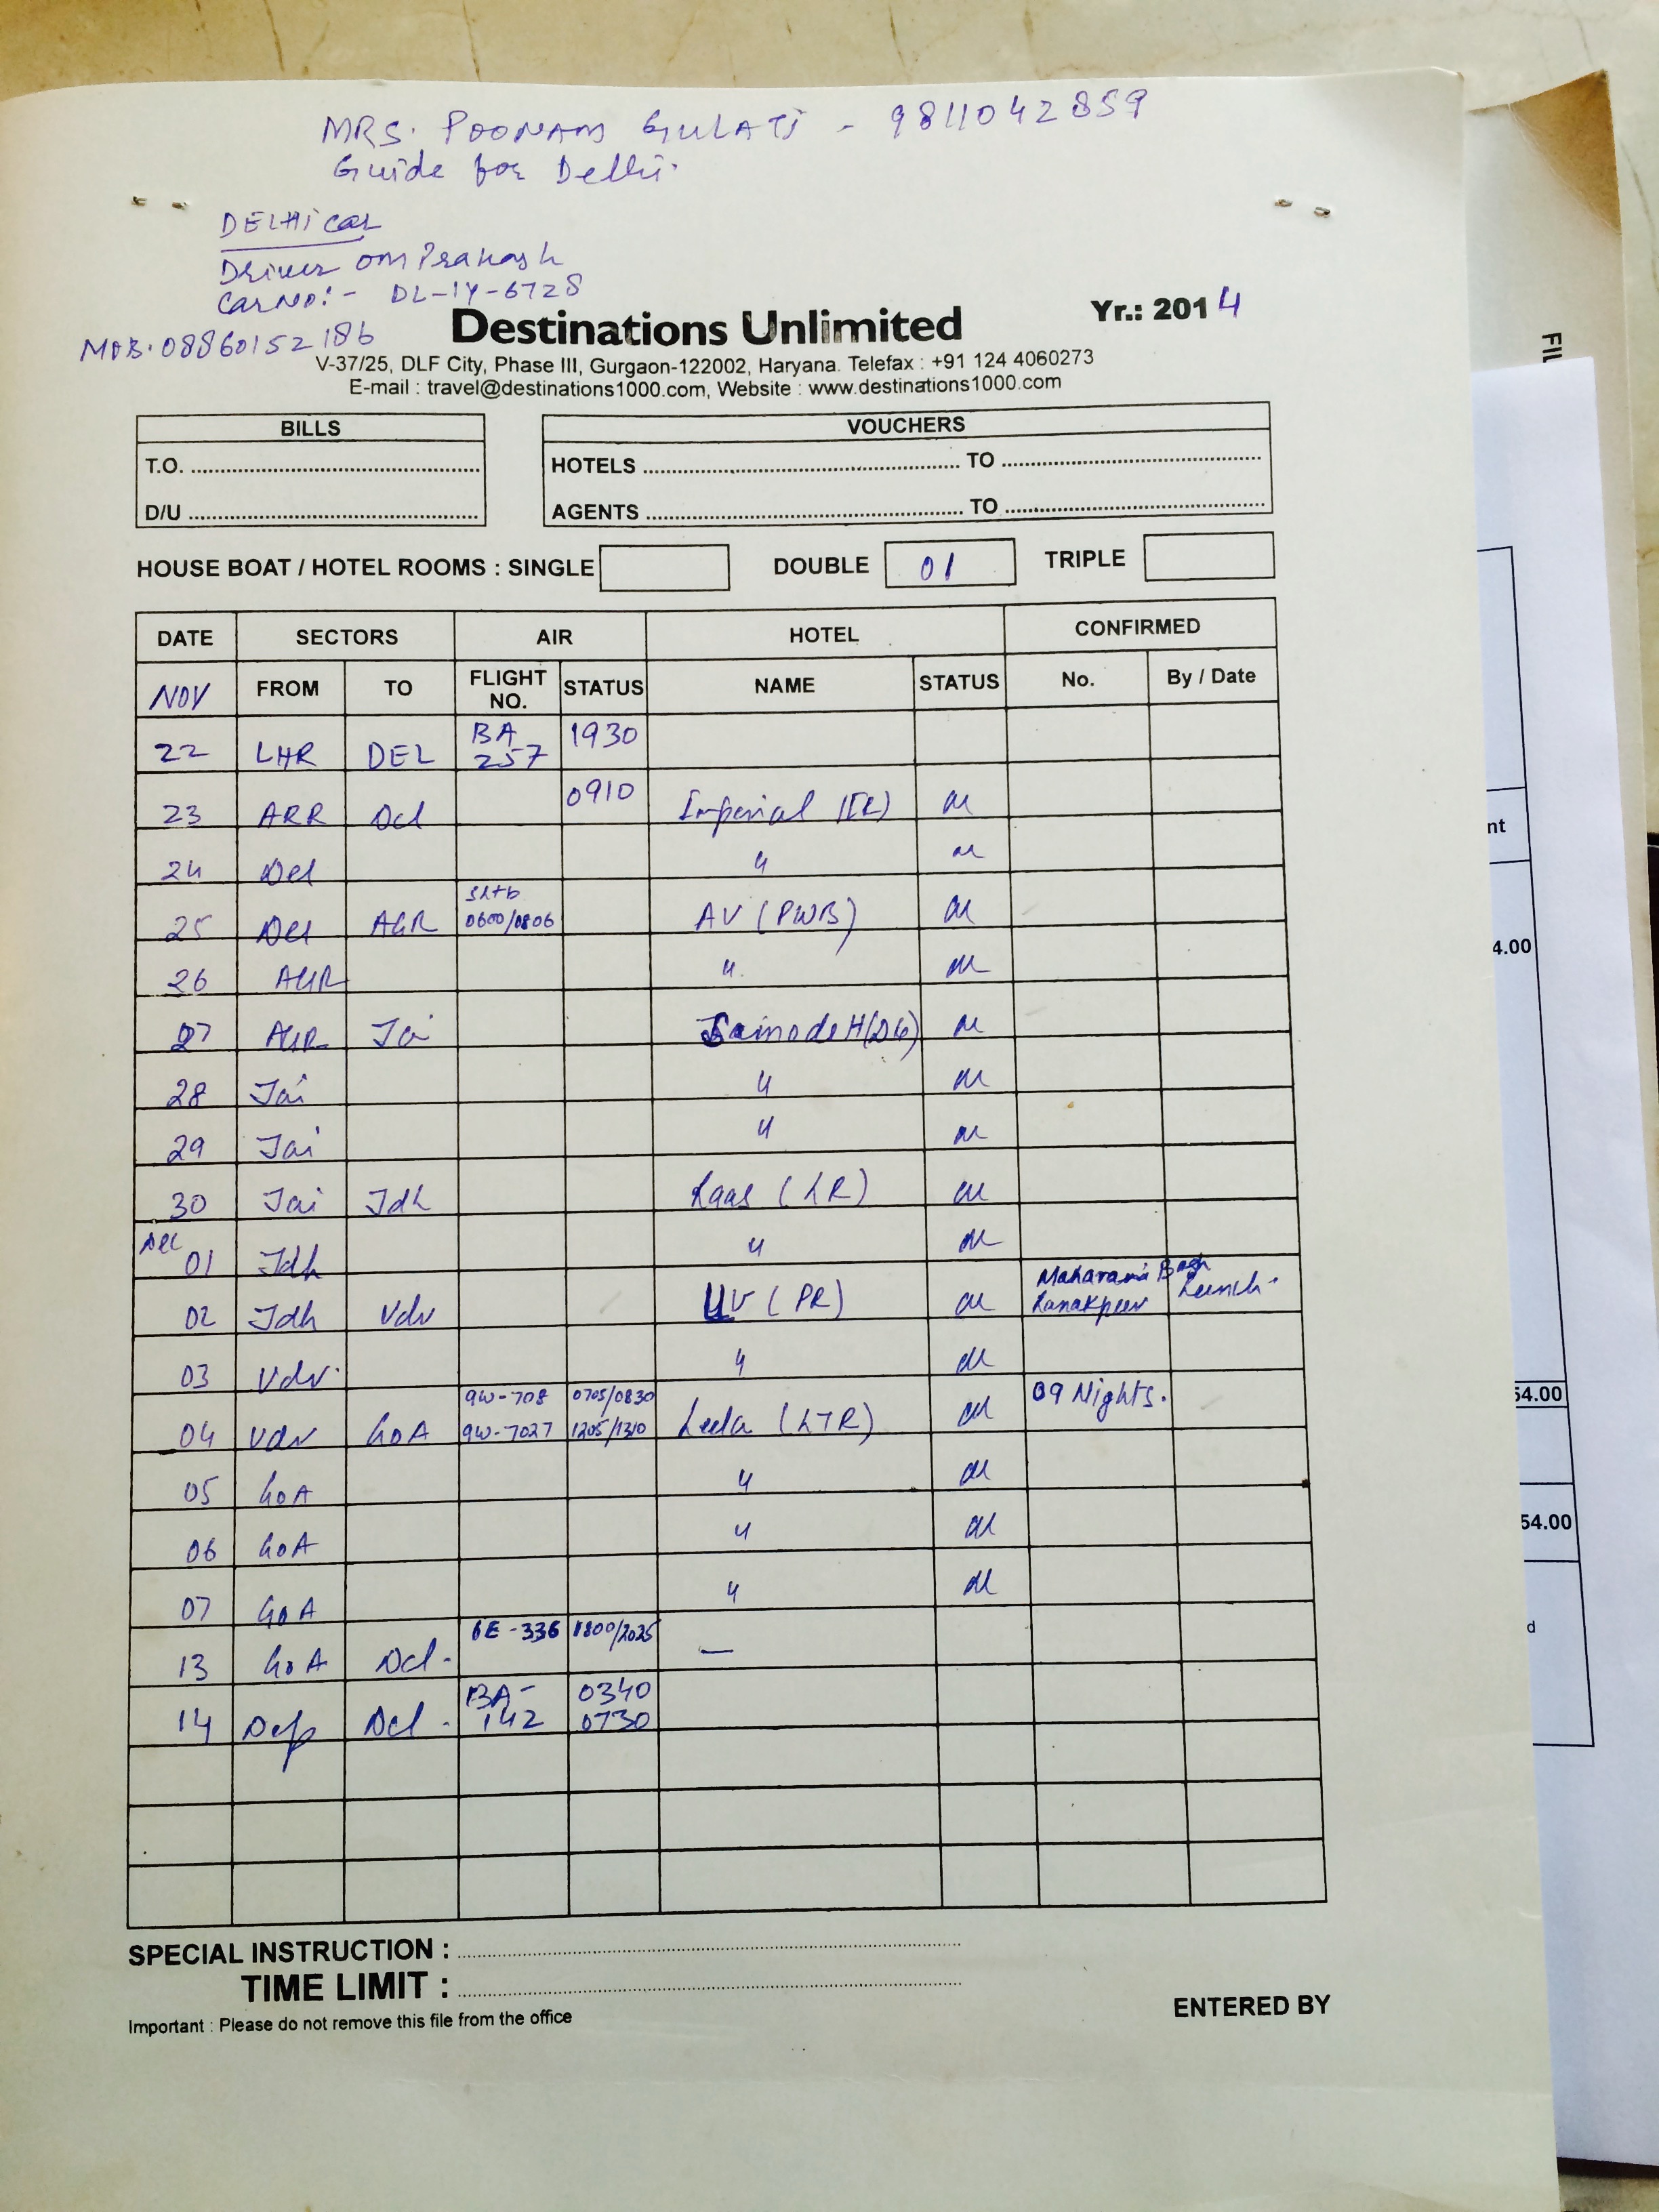 MRS. POONAM GULATI - 9811042859
Guide for Delhi.
DELHI car
Driver om Prakash
Car No:- DL-1Y-6728
MOB. 08860152186
Destinations Unlimited
Yr.: 2014
V-37/25, DLF City, Phase III, Gurgaon-122002, Haryana. Telefax : +91 124 4060273
E-mail : travel@destinations1000.com, Website : www.destinations1000.com
BILLS
T.O.
D/U
VOUCHERS
HOTELS TO
AGENTS TO
HOUSE BOAT / HOTEL ROOMS : SINGLE DOUBLE 01 TRIPLE
DATE SECTORS AIR HOTEL CONFIRMED
NOV FROM TO FLIGHT NO. STATUS NAME STATUS No. By / Date
22 LHR DEL BA 257 1930
23 ARR Del 0910 Imperial
24 Del "
25 Del AGR 0600/0806 AV (PWB)
26 AGR "
27 AGR Jai
28 Jai "
29 Jai "
30 Jai Jdh Raas (LR)
Dec 01 Jdh "
02 Jdh Udr UV (PR) Maharani Bagh Ranakpur Lunch.
03 Udr. "
04 Udr GOA 9W-708 0705/0830 9W-7027 1205/1310 Leela (LTR) 09 Nights.
05 GOA "
06 GOA "
07 GOA "
13 GOA Del. 6E-336 1800/2025 —
14 Dep Del. BA-142 0340 0730
SPECIAL INSTRUCTION :
TIME LIMIT :
Important : Please do not remove this file from the office
ENTERED BY
FIL
nt
4.00
54.00
54.00
d